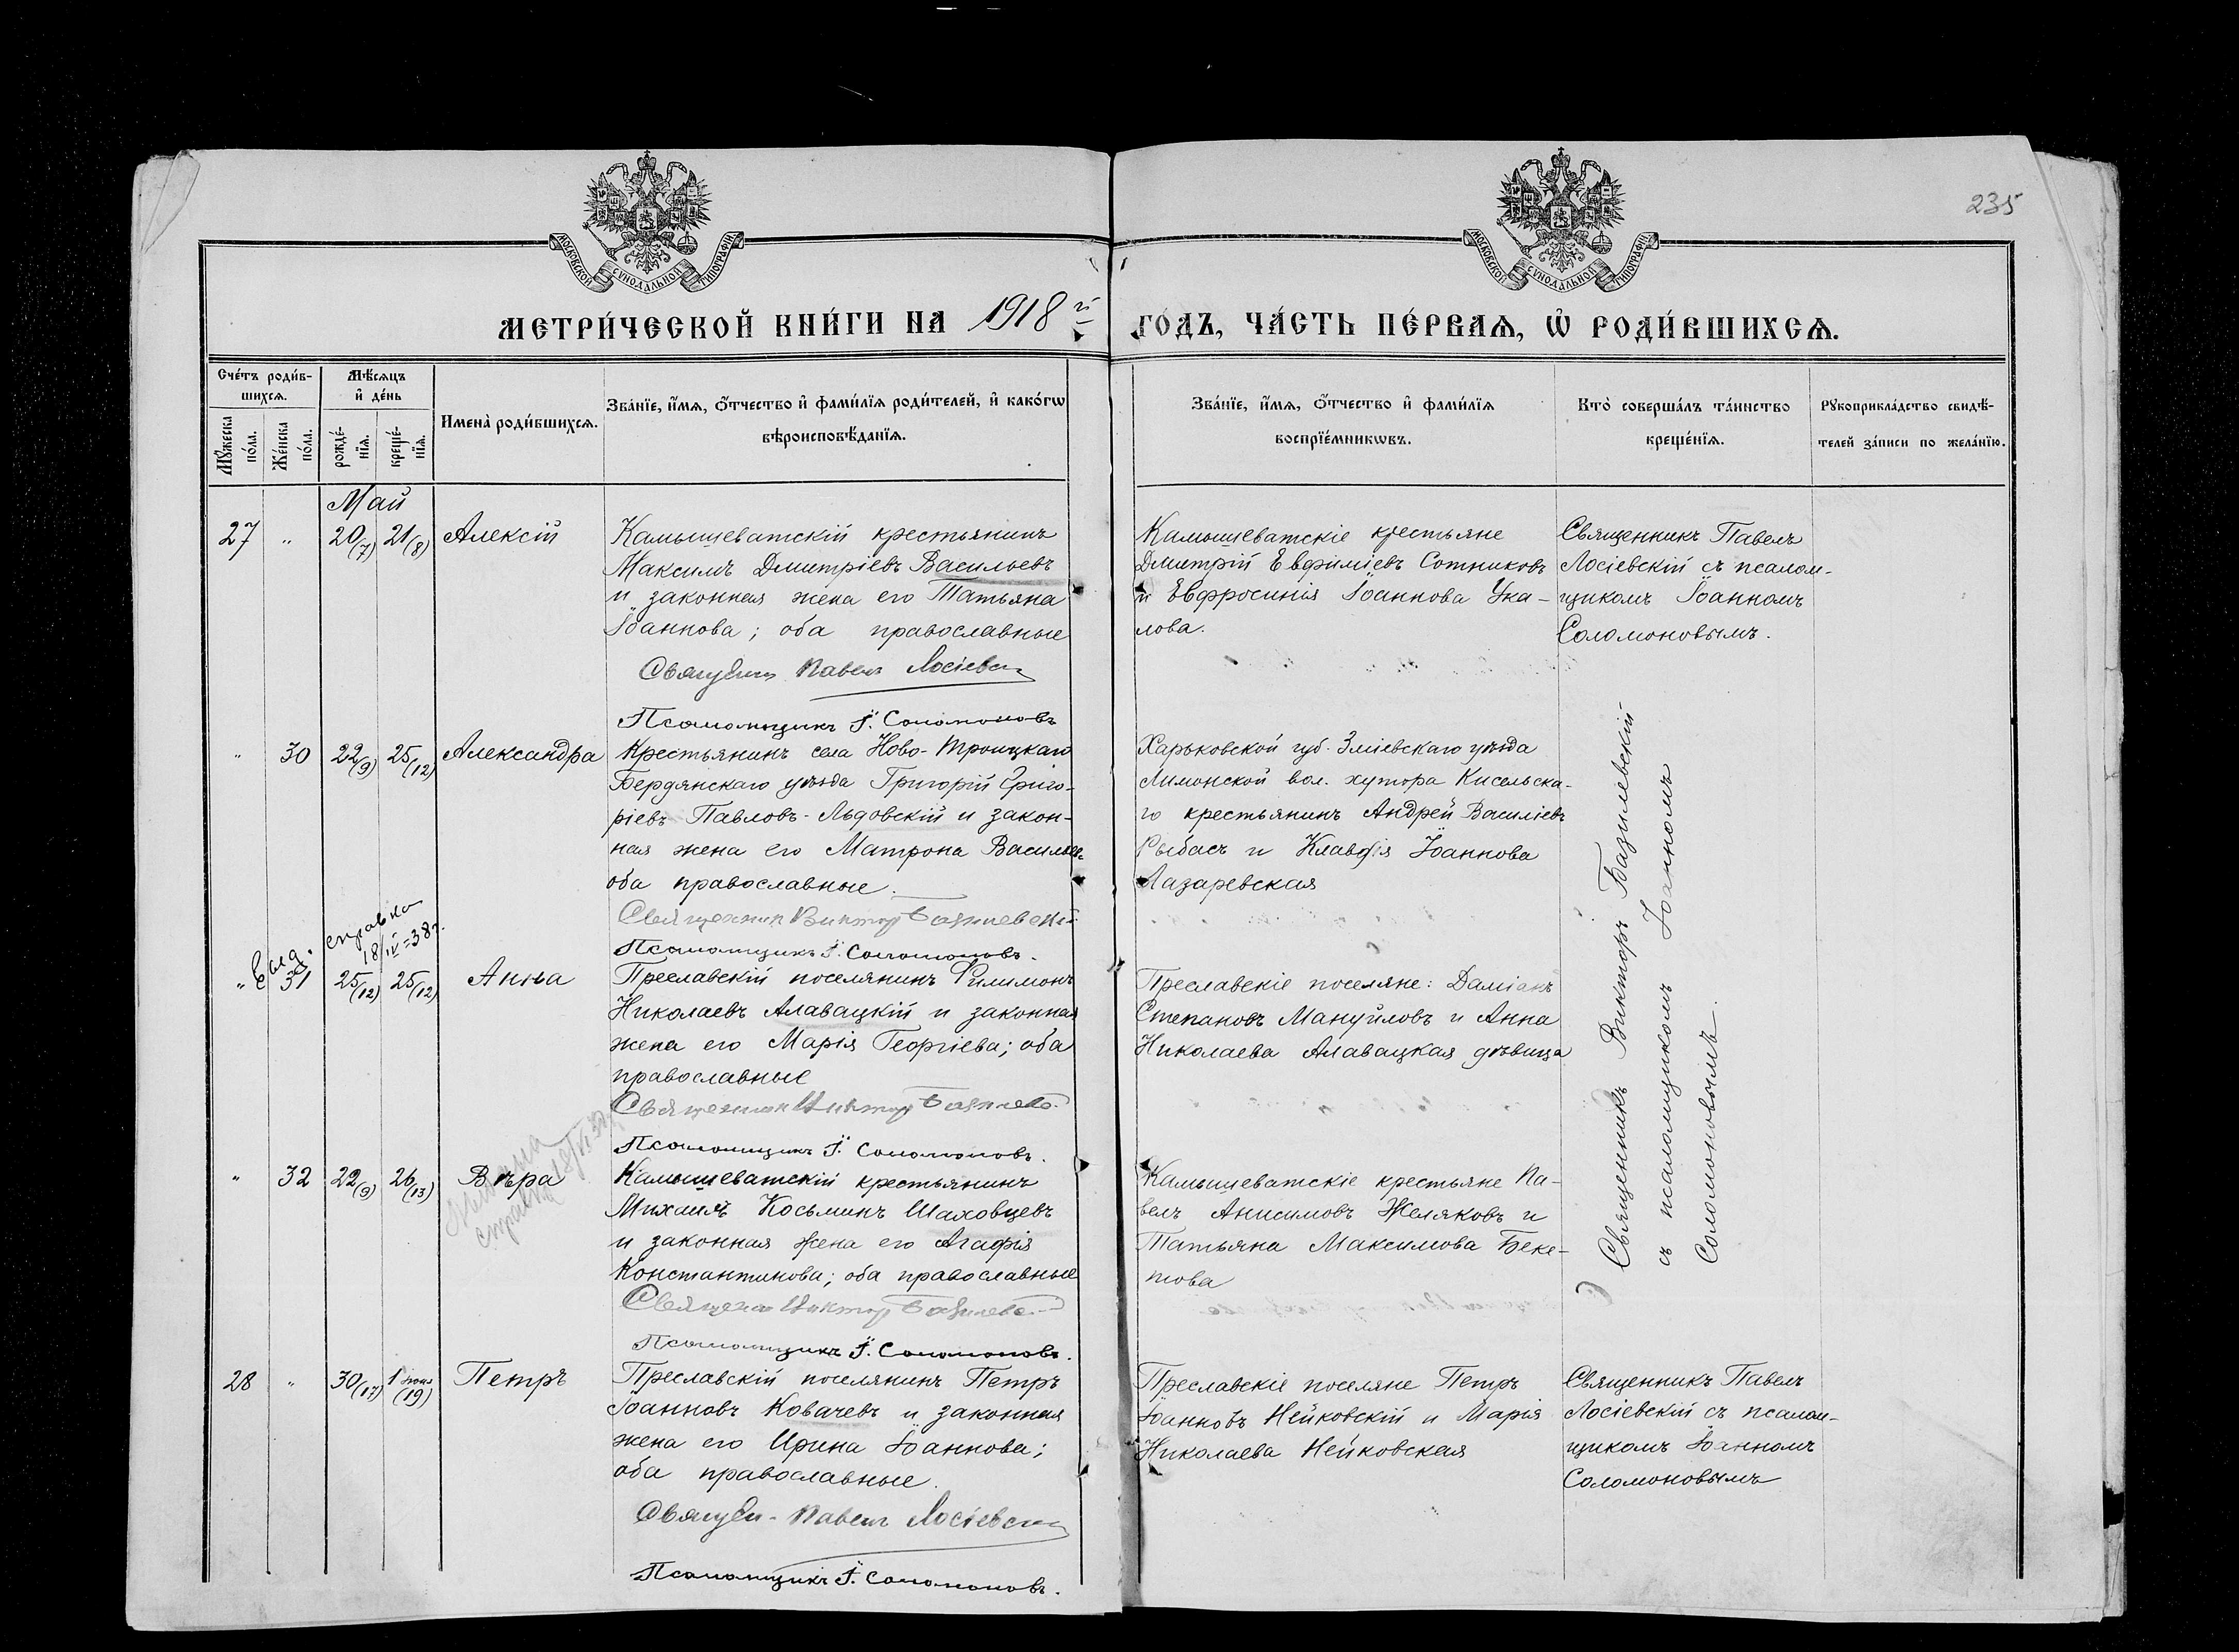 235
МОСКОВСКОЙ СѴНОДАЛЬНОЙ ТИПОГРАФІИ
МОСКОВСКОЙ СѴНОДАЛЬНОЙ ТИПОГРАФІИ
МЕТРИ́ЧЕСКОЙ КНИ́ГИ НА 1918 й
ГО́ДЪ, ЧА́СТЬ ПЕ́РВАѦ, Ѡ РОДИ́ВШИХСѦ.
Сче́тъ роди́в-
шихсѧ.
Мꙋ́жеска по́ла.
Же́нска по́ла.
Мѣ́сѧцъ
и҆ де́нь
рожде́-
нїѧ.
креще́-
нїѧ.
И҆мена̀ роди́вшихсѧ.
Зва́нїе, и҆́мѧ, ѻ҆́тчество и҆ фами́лїѧ роди́телей, и҆ како́гѡ
вѣроисповѣ́данїѧ.
Зва́нїе, и҆́мѧ, ѻ҆́тчество и҆ фами́лїѧ
воспрїе́мникѡвъ.
Кто̀ соверша́лъ та́инство
креще́нїѧ.
Рꙋкоприкла́дство свидѣ́-
телей за́писи по жела́нїю.
Май
27 " 20(7) 21(8) Алексій
Камышеватскій крестьянинъ
Максимъ Дмитріевъ Васильевъ
и законная жена его Татьяна
Іоаннова; оба православные
Священ Павел Лосіевск
Псаломщикъ І. Соломоновъ
Камышеватскіе крестьяне
Дмитрій Евфиміевъ Сотниковъ
и Евфросинія Іоаннова Ука-
лова.
Священникъ Павелъ
Лосіевскій съ псалом-
щикомъ Іоанномъ
Соломоновымъ.
" 30 22(9) 25(12) Александра
Крестьянинъ села Ново-Троицкаго
Бердянскаго уѣзда Григорій Григо-
ріевъ Павловъ-Льдовскій и закон-
ная жена его Матрона Васильева
оба православные.
Священник Виктор Базилевскій
Псаломщикъ І. Соломоновъ.
Харьковской губ. Зміевскаго уѣзда
Лиманской вол. хутора Кисельска-
го крестьянинъ Андрей Василіевъ
Рыбасъ и Клавдія Іоаннова
Лазаревская
Священникъ Викторъ Базилевскій
съ псаломщикомъ Іоанномъ
Соломоновымъ.
Выд. справка
18/IV=38г.
" 31 25(12) 25(12) Анна
Преславскій поселянинъ Филимонъ
Николаевъ Алавацкій и законная
жена его Марія Георгіева; оба
православные
Священник Виктор Базилев
Псаломщикъ І. Соломоновъ.
Преславскіе поселяне: Даміанъ
Степановъ Мануйловъ и Анна
Николаева Алавацкая дѣвица
справка
" 32 22(9) 26(13) Вѣра
Камышеватскій крестьянинъ
Михаилъ Косьминъ Шаховцевъ
и законная жена его Агафія
Константинова; оба православные
Священ Виктор Базилев
Псаломщикъ І. Соломоновъ.
Камышеватскіе крестьяне Па-
велъ Анисимовъ Желяковъ и
Татьяна Максимова Беке-
това
28 " 30(17) 1 іюня (19) Петръ
Преславскій поселянинъ Петръ
Іоанновъ Ковачевъ и законная
жена его Ирина Іоаннова;
оба православные.
Священ Павел Лосіевск
Псаломщикъ І. Соломоновъ.
Преславскіе поселяне Петръ
Іоанновъ Нейковскій и Марія
Николаева Нейковская
Священникъ Павелъ
Лосіевскій съ псалом-
щикомъ Іоанномъ
Соломоновымъ